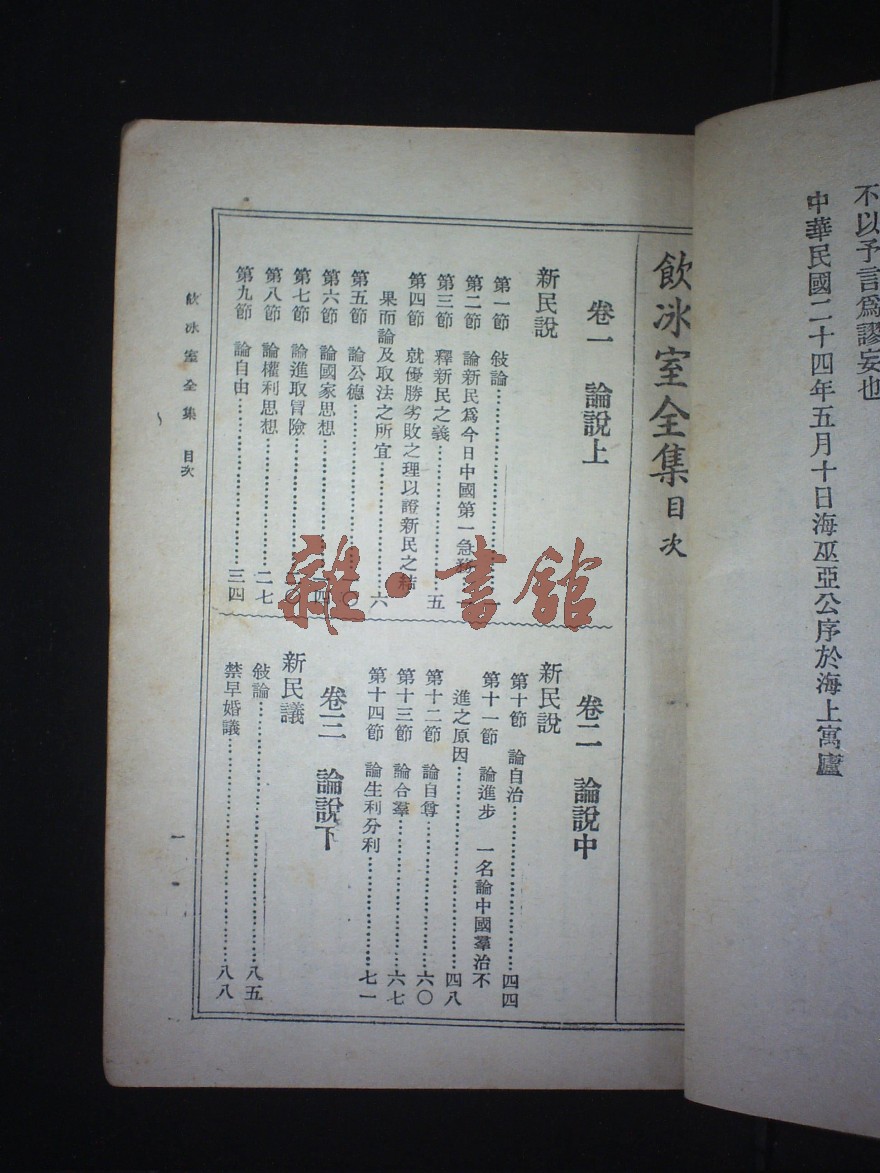 不以予言爲謬妄也
中華民國二十四年五月十日海巫亞公序於海上寓廬
飲冰室全集目次
卷一 論說上
新民說
第一節 敍論…………一
第二節 論新民爲今日中國第一急務
第三節 釋新民之義…………五
第四節 就優勝劣敗之理以證新民之結
果而論及取法之所宜…………六
第五節 論公德…………〇
第六節 論國家思想…………四
第七節 論進取冒險…………〇
第八節 論權利思想…………二七
第九節 論自由…………三四
卷二 論說中
新民說
第十節 論自治…………四四
第十一節 論進步 一名論中國羣治不
進之原因…………四八
第十二節 論自尊…………六〇
第十三節 論合羣…………六七
第十四節 論生利分利…………七一
卷三 論說下
新民議
敍論…………八五
禁早婚議…………八八
飲冰室全集 目次
一
雜·書館